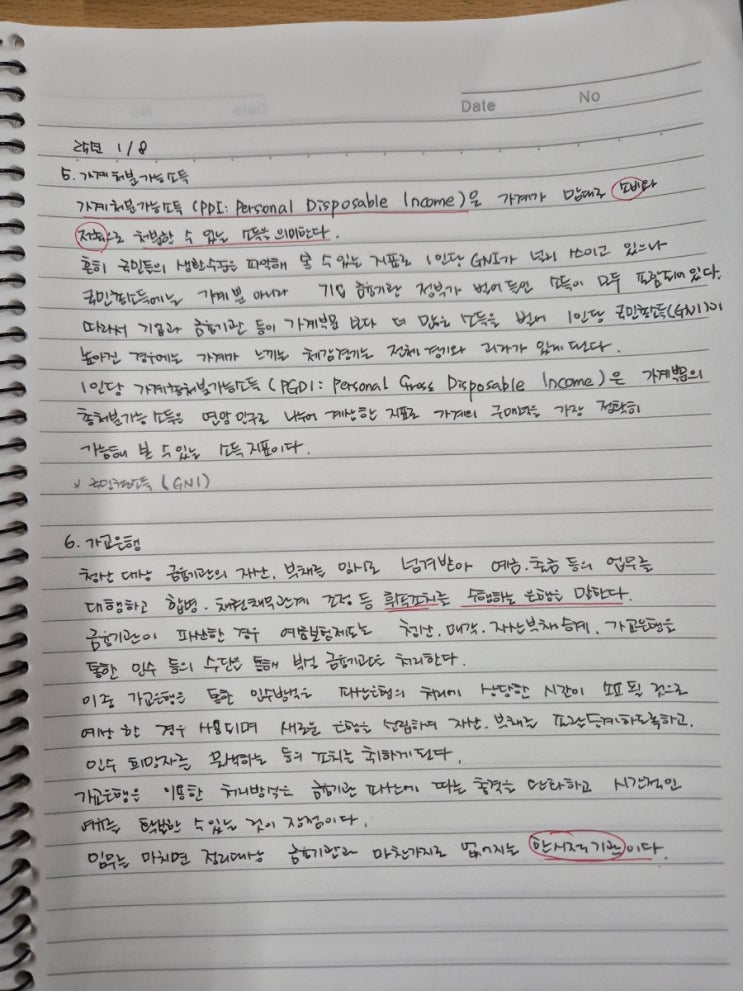 Date No
1/8
5. 가계처분가능소득
가계처분가능소득 (PDI: Personal Disposable Income)은 가계가 맘대로 소비와
저축으로 처분할 수 있는 소득을 의미한다.
흔히 국민들의 생활수준을 파악해 볼 수 있는 지표로 1인당 GNI가 널리 쓰이고 있으나
국민총소득에는 가계뿐 아니라 기업 금융기관 정부가 벌어들인 소득이 모두 포함되어 있다.
따라서 기업과 금융기관 등이 가계부문 보다 더 많은 소득을 벌어 1인당 국민총소득(GNI)이
높아진 경우에는 가계가 느끼는 체감경기는 전체 경기와 괴리가 있게 된다.
1인당 가계총처분가능소득 (PGDI: Personal Gross Disposable Income)은 가계부문의
총처분가능 소득을 연앙인구로 나누어 계산한 지표로 가계의 구매력을 가장 정확히
가늠해 볼 수 있는 소득지표이다.
* 국민총소득 (GNI)
6. 가교은행
청산 대상 금융기관의 자산, 부채를 임시로 넘겨받아 예금.출금 등의 업무를
대행하고 합병. 채권채무관계 조정 등 후속조치를 수행하는 은행을 말한다.
금융기관이 파산한 경우 예금보험제도는 청산.매각.자산부채승계. 가교은행을
통한 인수 등의 수단을 통해 부실 금융기관을 처리한다.
이중 가교은행을 통한 인수방식은 파산은행의 처리에 상당한 시간이 소요될 것으로
예상 한 경우 사용되며 새로운 은행을 설립하여 자산.부채를 포괄승계하도록하고.
인수 희망자를 모색하는 등의 조치를 취하게된다.
가교은행을 이용한 처리방식은 금융기관 파산에 따른 충격을 완화하고 시간적인
여유를 확보할 수 있는 것이 장점이다.
임무를 마치면 정리대상 금융기관과 마찬가지로 없어지는 한시적 기관이다.